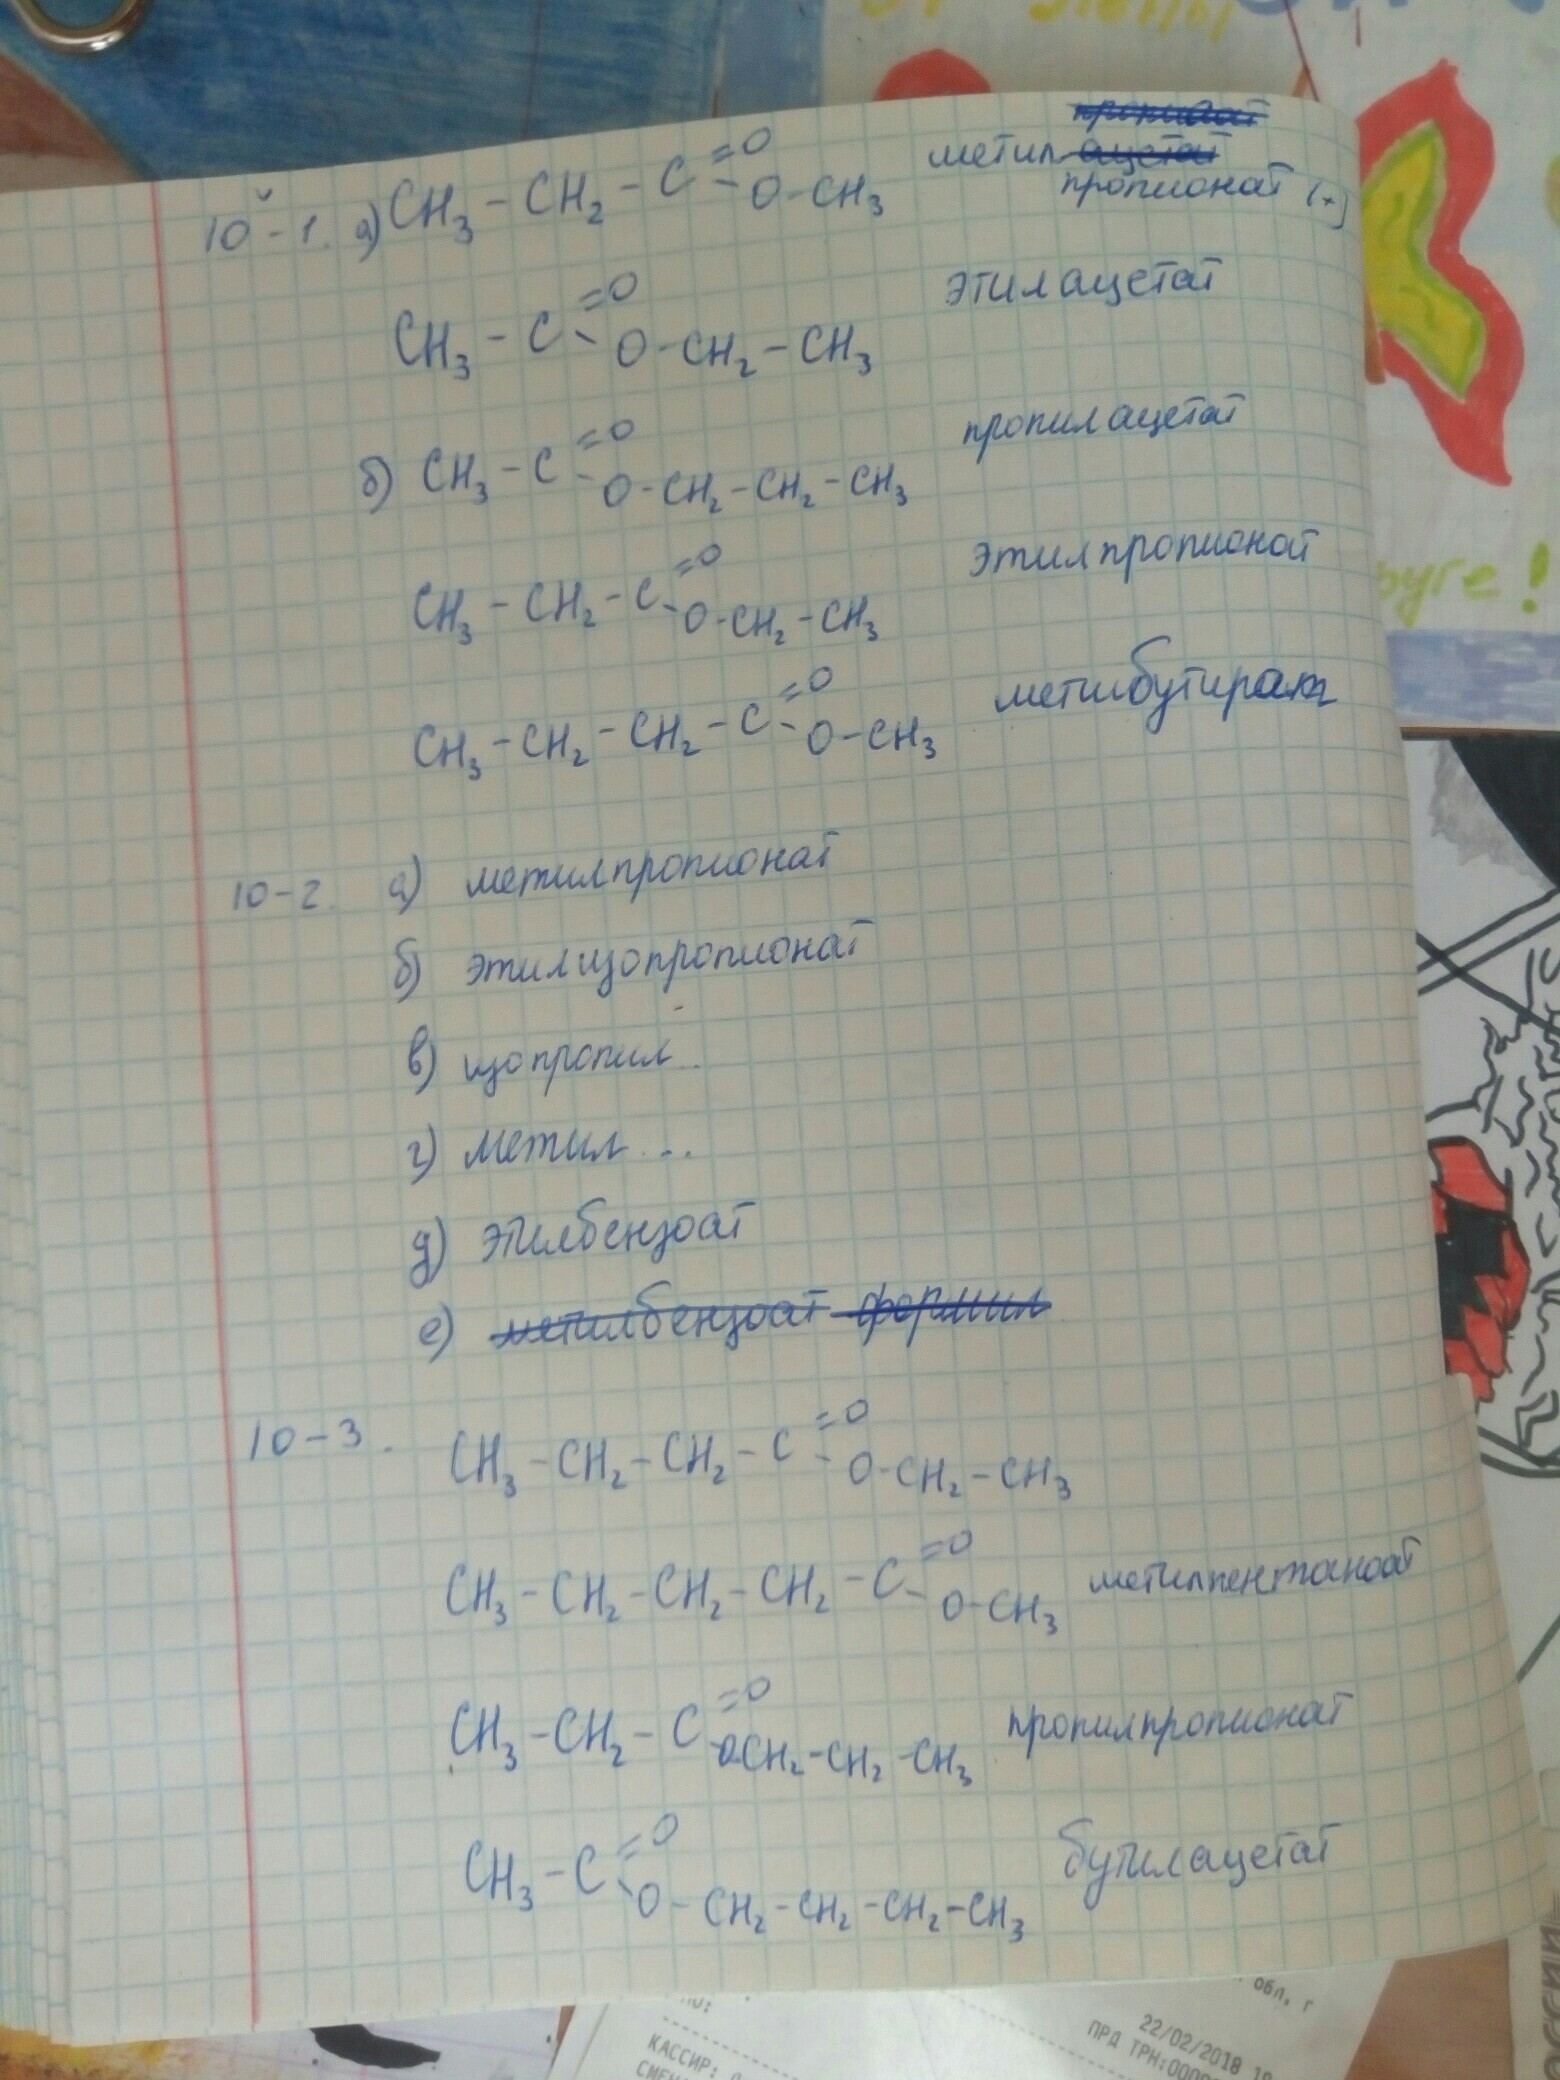 от Лены
руге!
10-1. а) CH3 - CH2 - C =O - O - CH3 метил пропионат (+)
CH3 - C =O - O - CH2 - CH3 этилацетат
б) CH3 - C =O - O - CH2 - CH2 - CH3 пропилацетат
CH3 - CH2 - C =O - O - CH2 - CH3 этилпропионат
CH3 - CH2 - CH2 - C =O - O - CH3 метибутират
10-2. а) метилпропионат
б) этилизопропионат
в) изопропил..
г) метил ...
д) этилбензоат
е) метилбензоат формил
10-3. CH3 - CH2 - CH2 - C =O - O - CH2 - CH3
CH3 - CH2 - CH2 - CH2 - C =O - O - CH3 метилпентаноат
CH3 - CH2 - C =O - OCH2 - CH2 - CH3 пропилпропионат
CH3 - C =O - O - CH2 - CH2 - CH2 - CH3 бутилацетат
обл, г
22/02/2018
ПРД ТРН:
КАССИР: